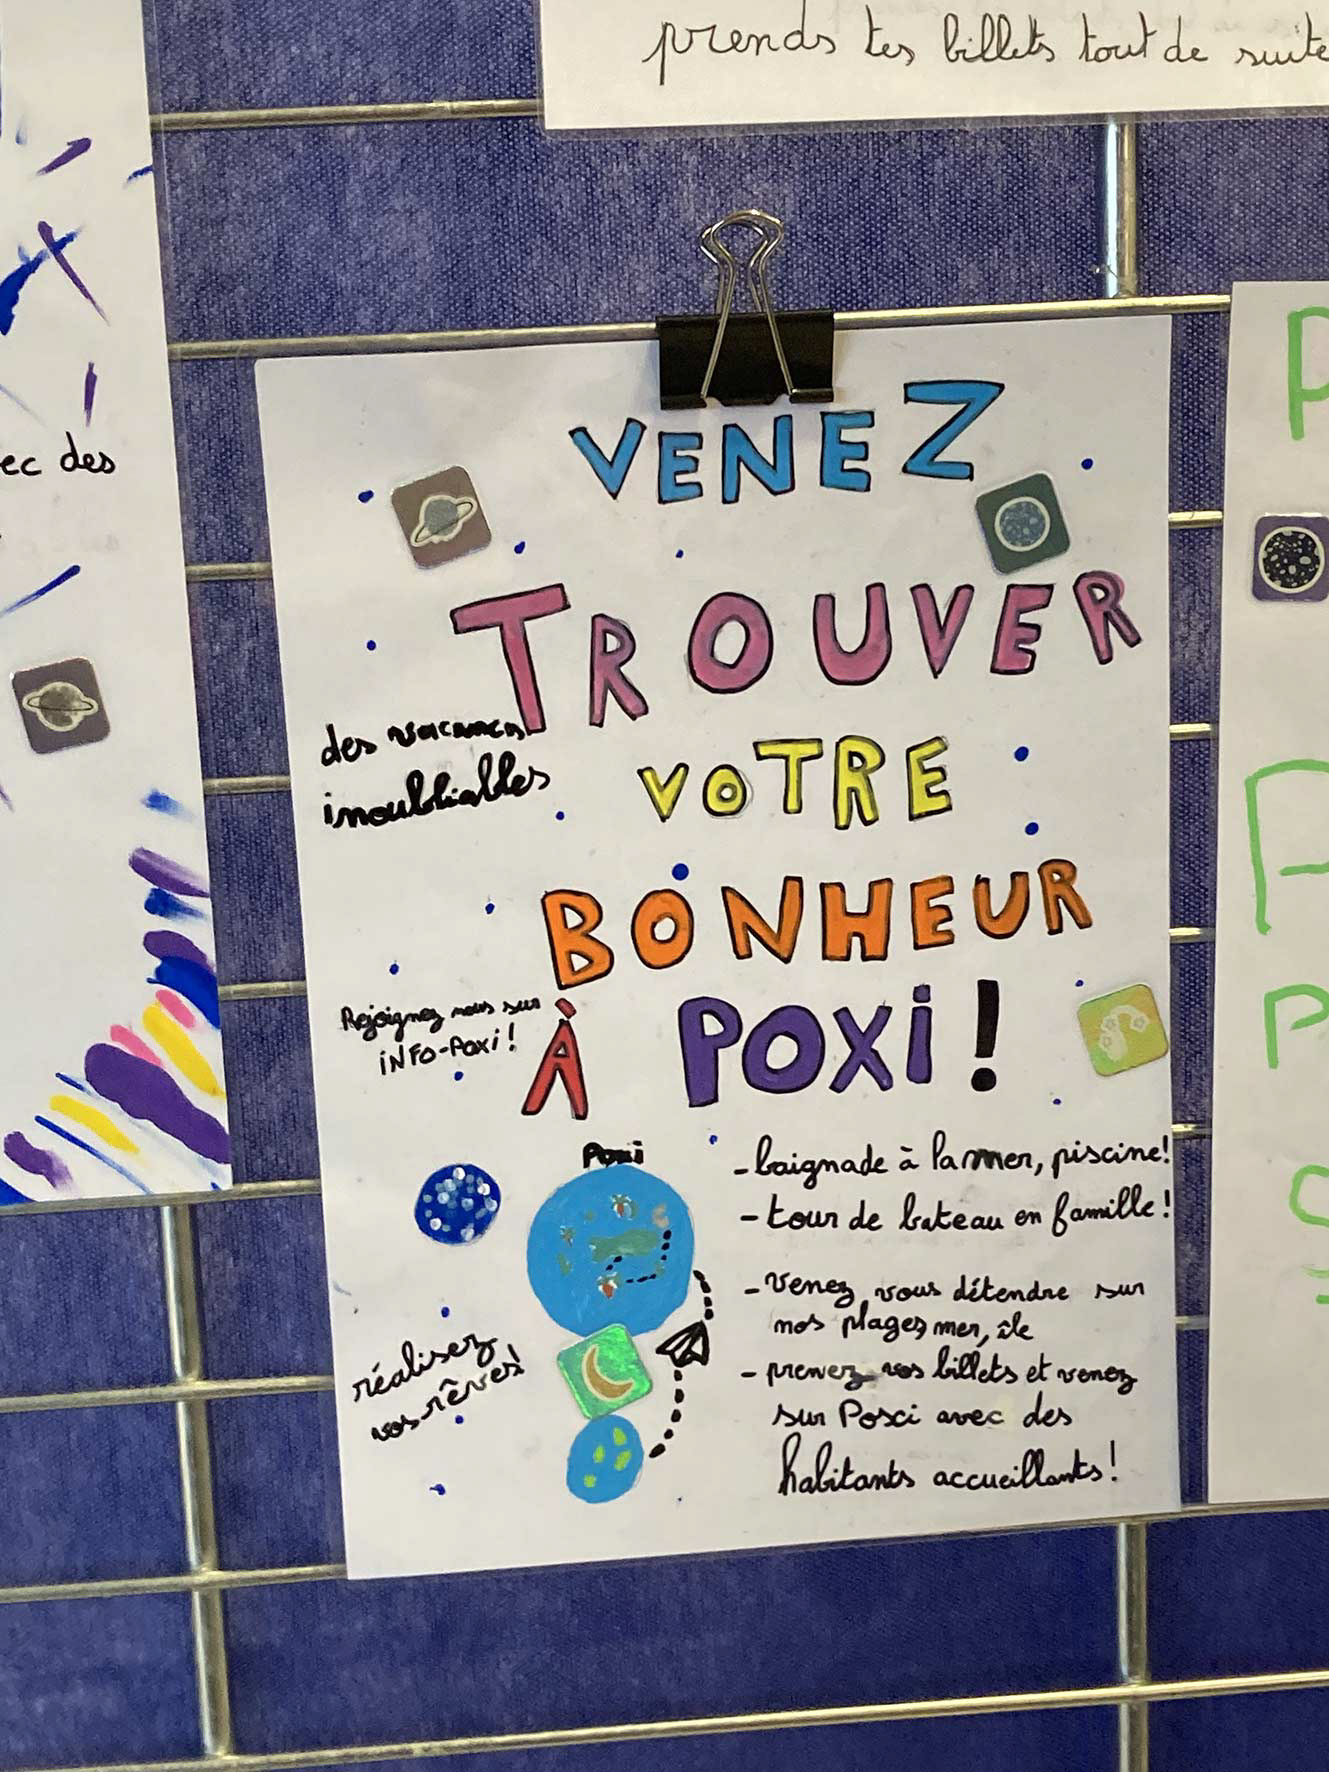 prends tes billets tout de suite
ec des
VENEZ
TROUVER
des vacances
inoubliables
VOTRE
BONHEUR
Rejoignez nous sur
INFO-POXi!
À POXi!
Poxi
- baignade à la mer, piscine!
- tour de bateau en famille!
- venez vous détendre sur
nos plages, mer, île
- prenez vos billets et venez
sur Posci avec des
habitants accueillants!
réalisez
vos rêves!
P
P
P